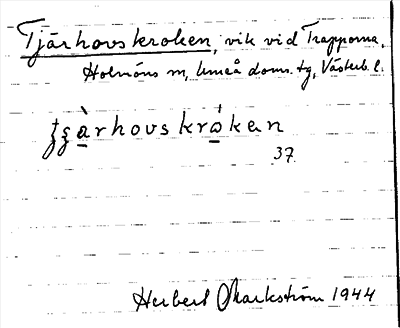 Tjärhovskroken, vik vid Trapporna,
Holmöns sn, Umeå doms. tg, Västerb. l.
ʈʂàrhovskrókən
37.
Herbert Markström 1944